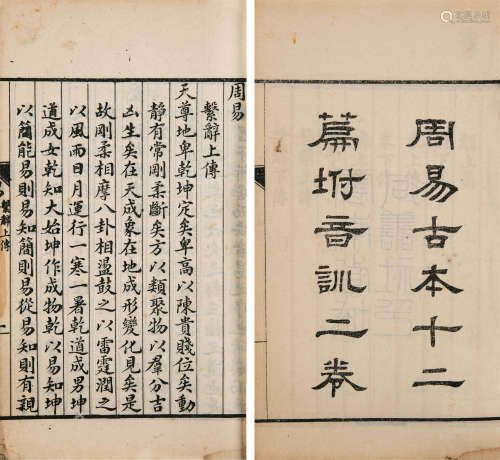 周易古本十二
篇坿音訓二卷
周易
繫辭上傳
天尊地卑乾坤定矣卑高以陳貴賤位矣動
靜有常剛柔斷矣方以類聚物以羣分吉
凶生矣在天成象在地成形變化見矣是
故剛柔相摩八卦相盪鼓之以雷霆潤之
以風雨日月運行一寒一暑乾道成男坤
道成女乾知大始坤作成物乾以易知坤
以簡能易則易知簡則易從易知則有親
易 繫辭上傳 一